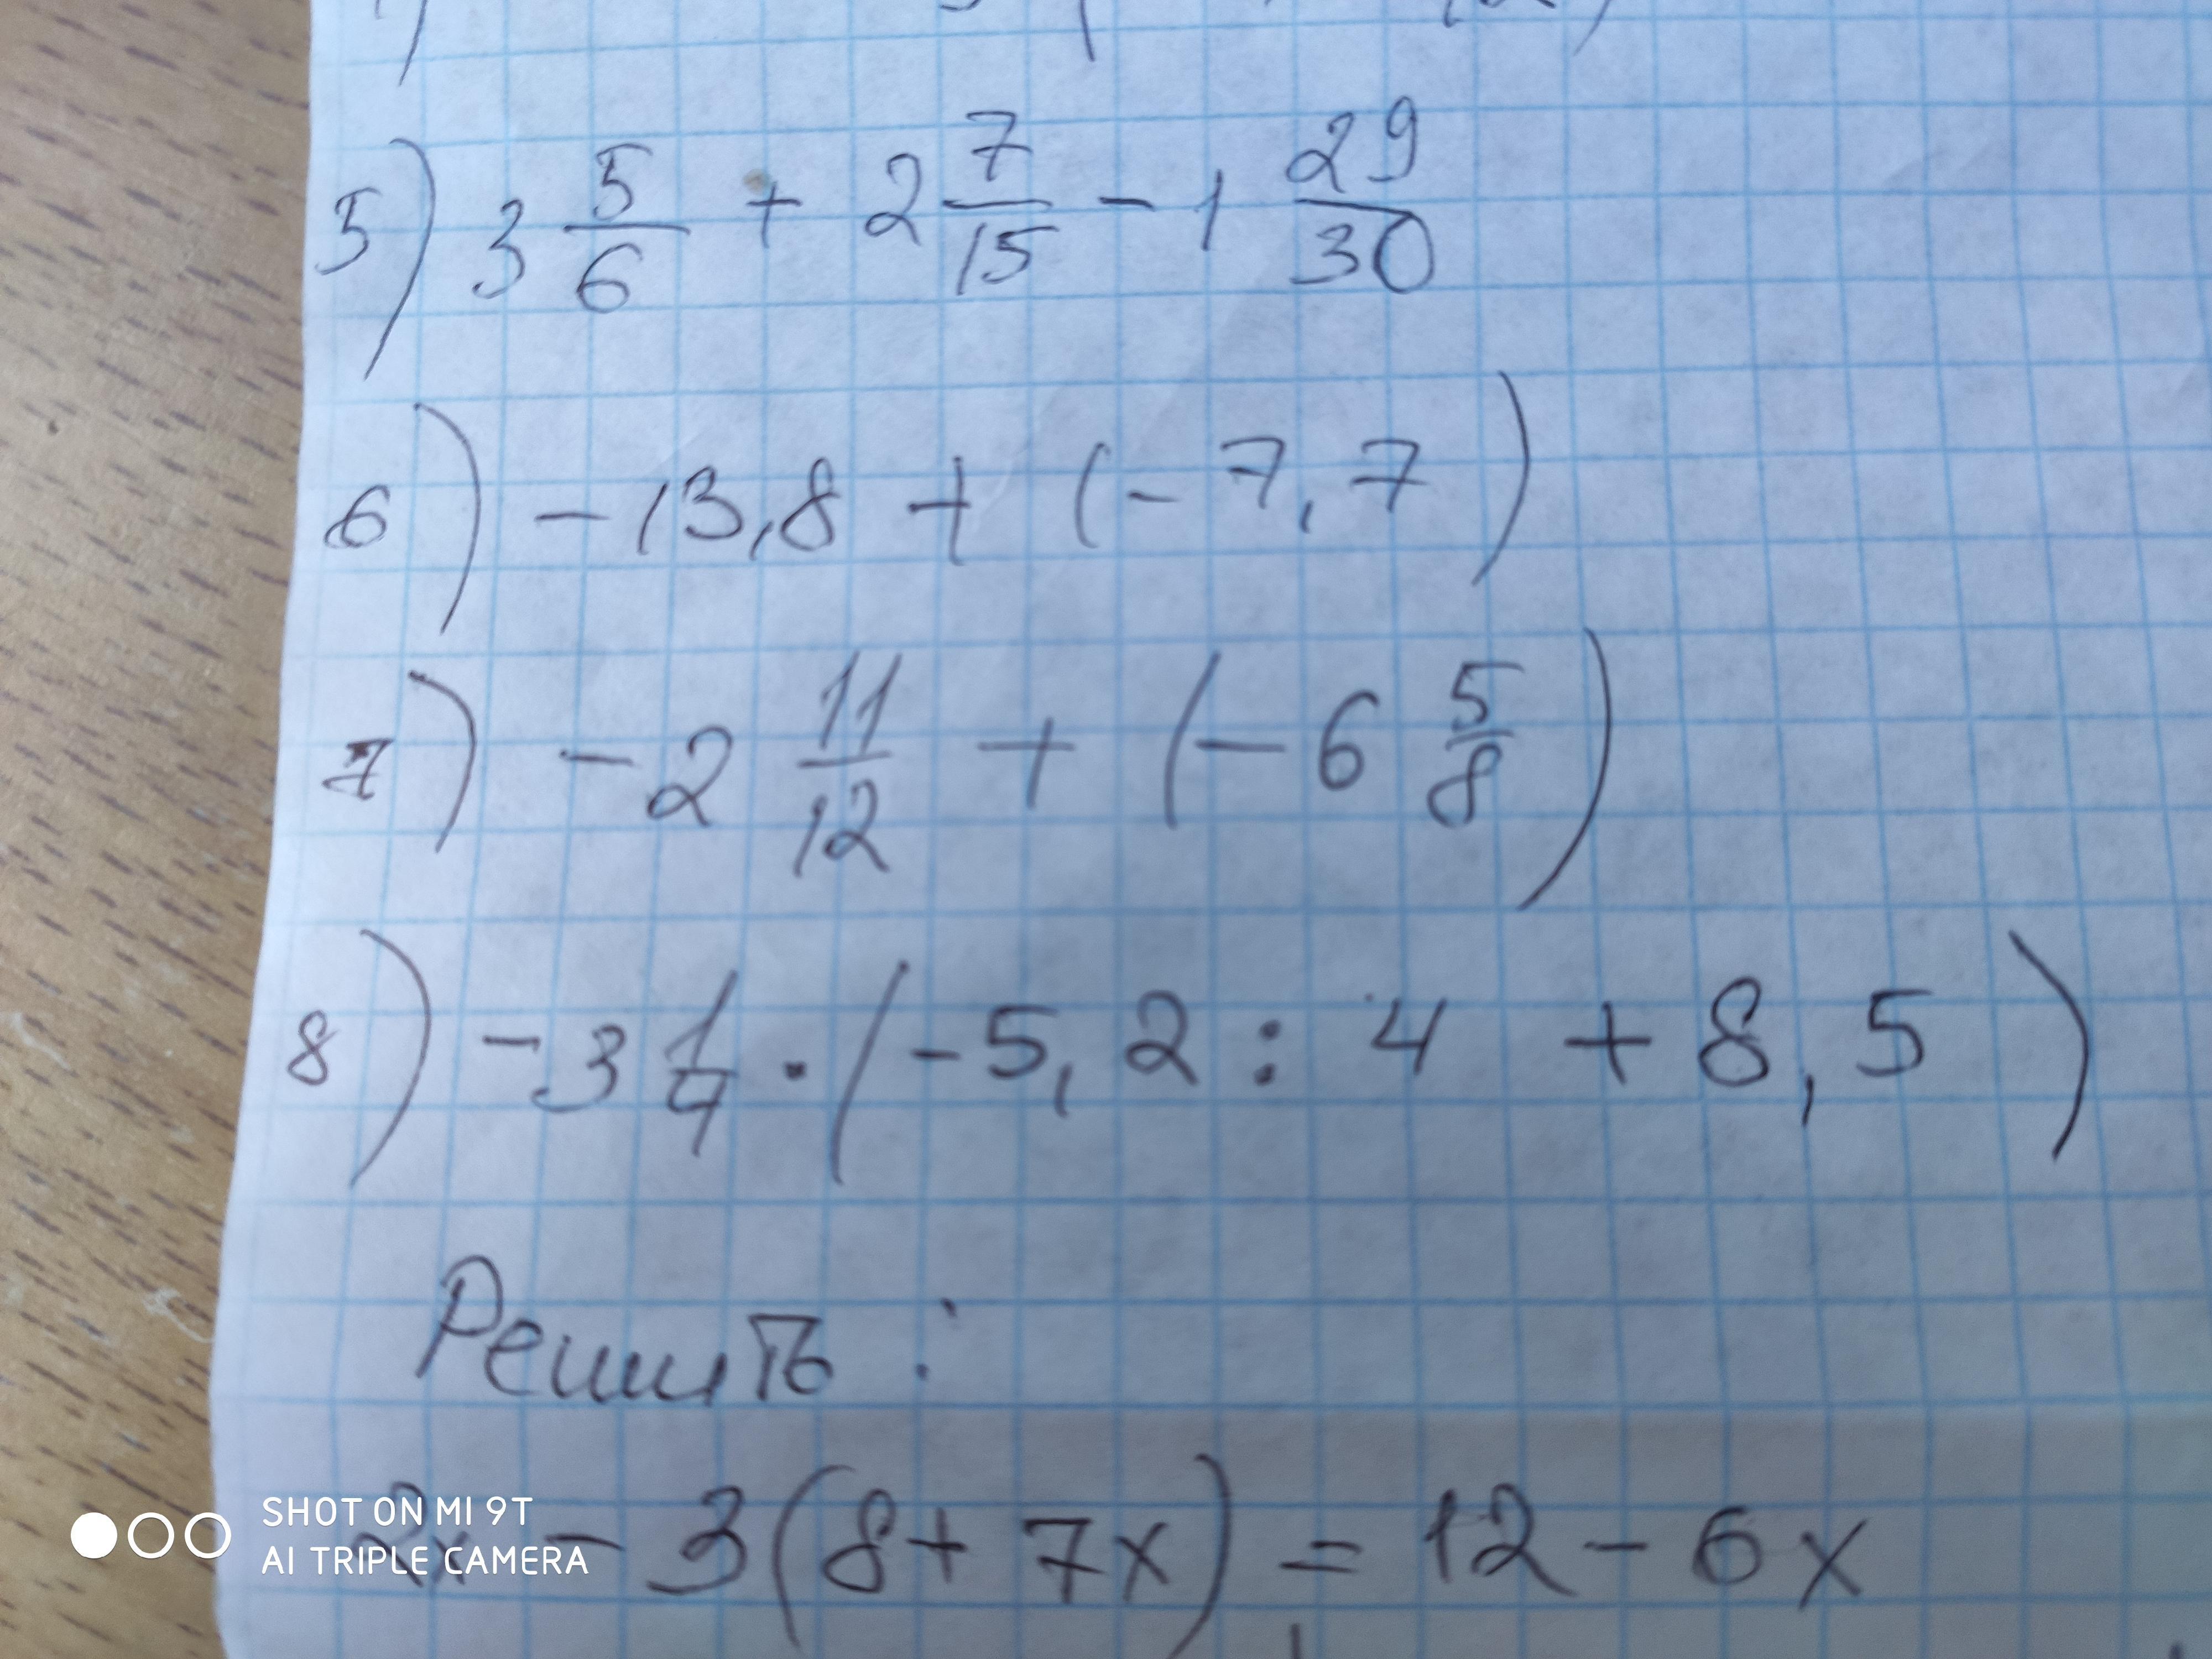 5) 3 5/6 + 2 7/15 - 1 29/30
6) - 13,8 + (- 7,7)
7) - 2 11/12 + (- 6 5/8)
8) - 3 1/4 · (- 5,2 : 4 + 8,5)
Решить :
2x - 3(8 + 7x) = 12 - 6x
SHOT ON MI 9T
AI TRIPLE CAMERA